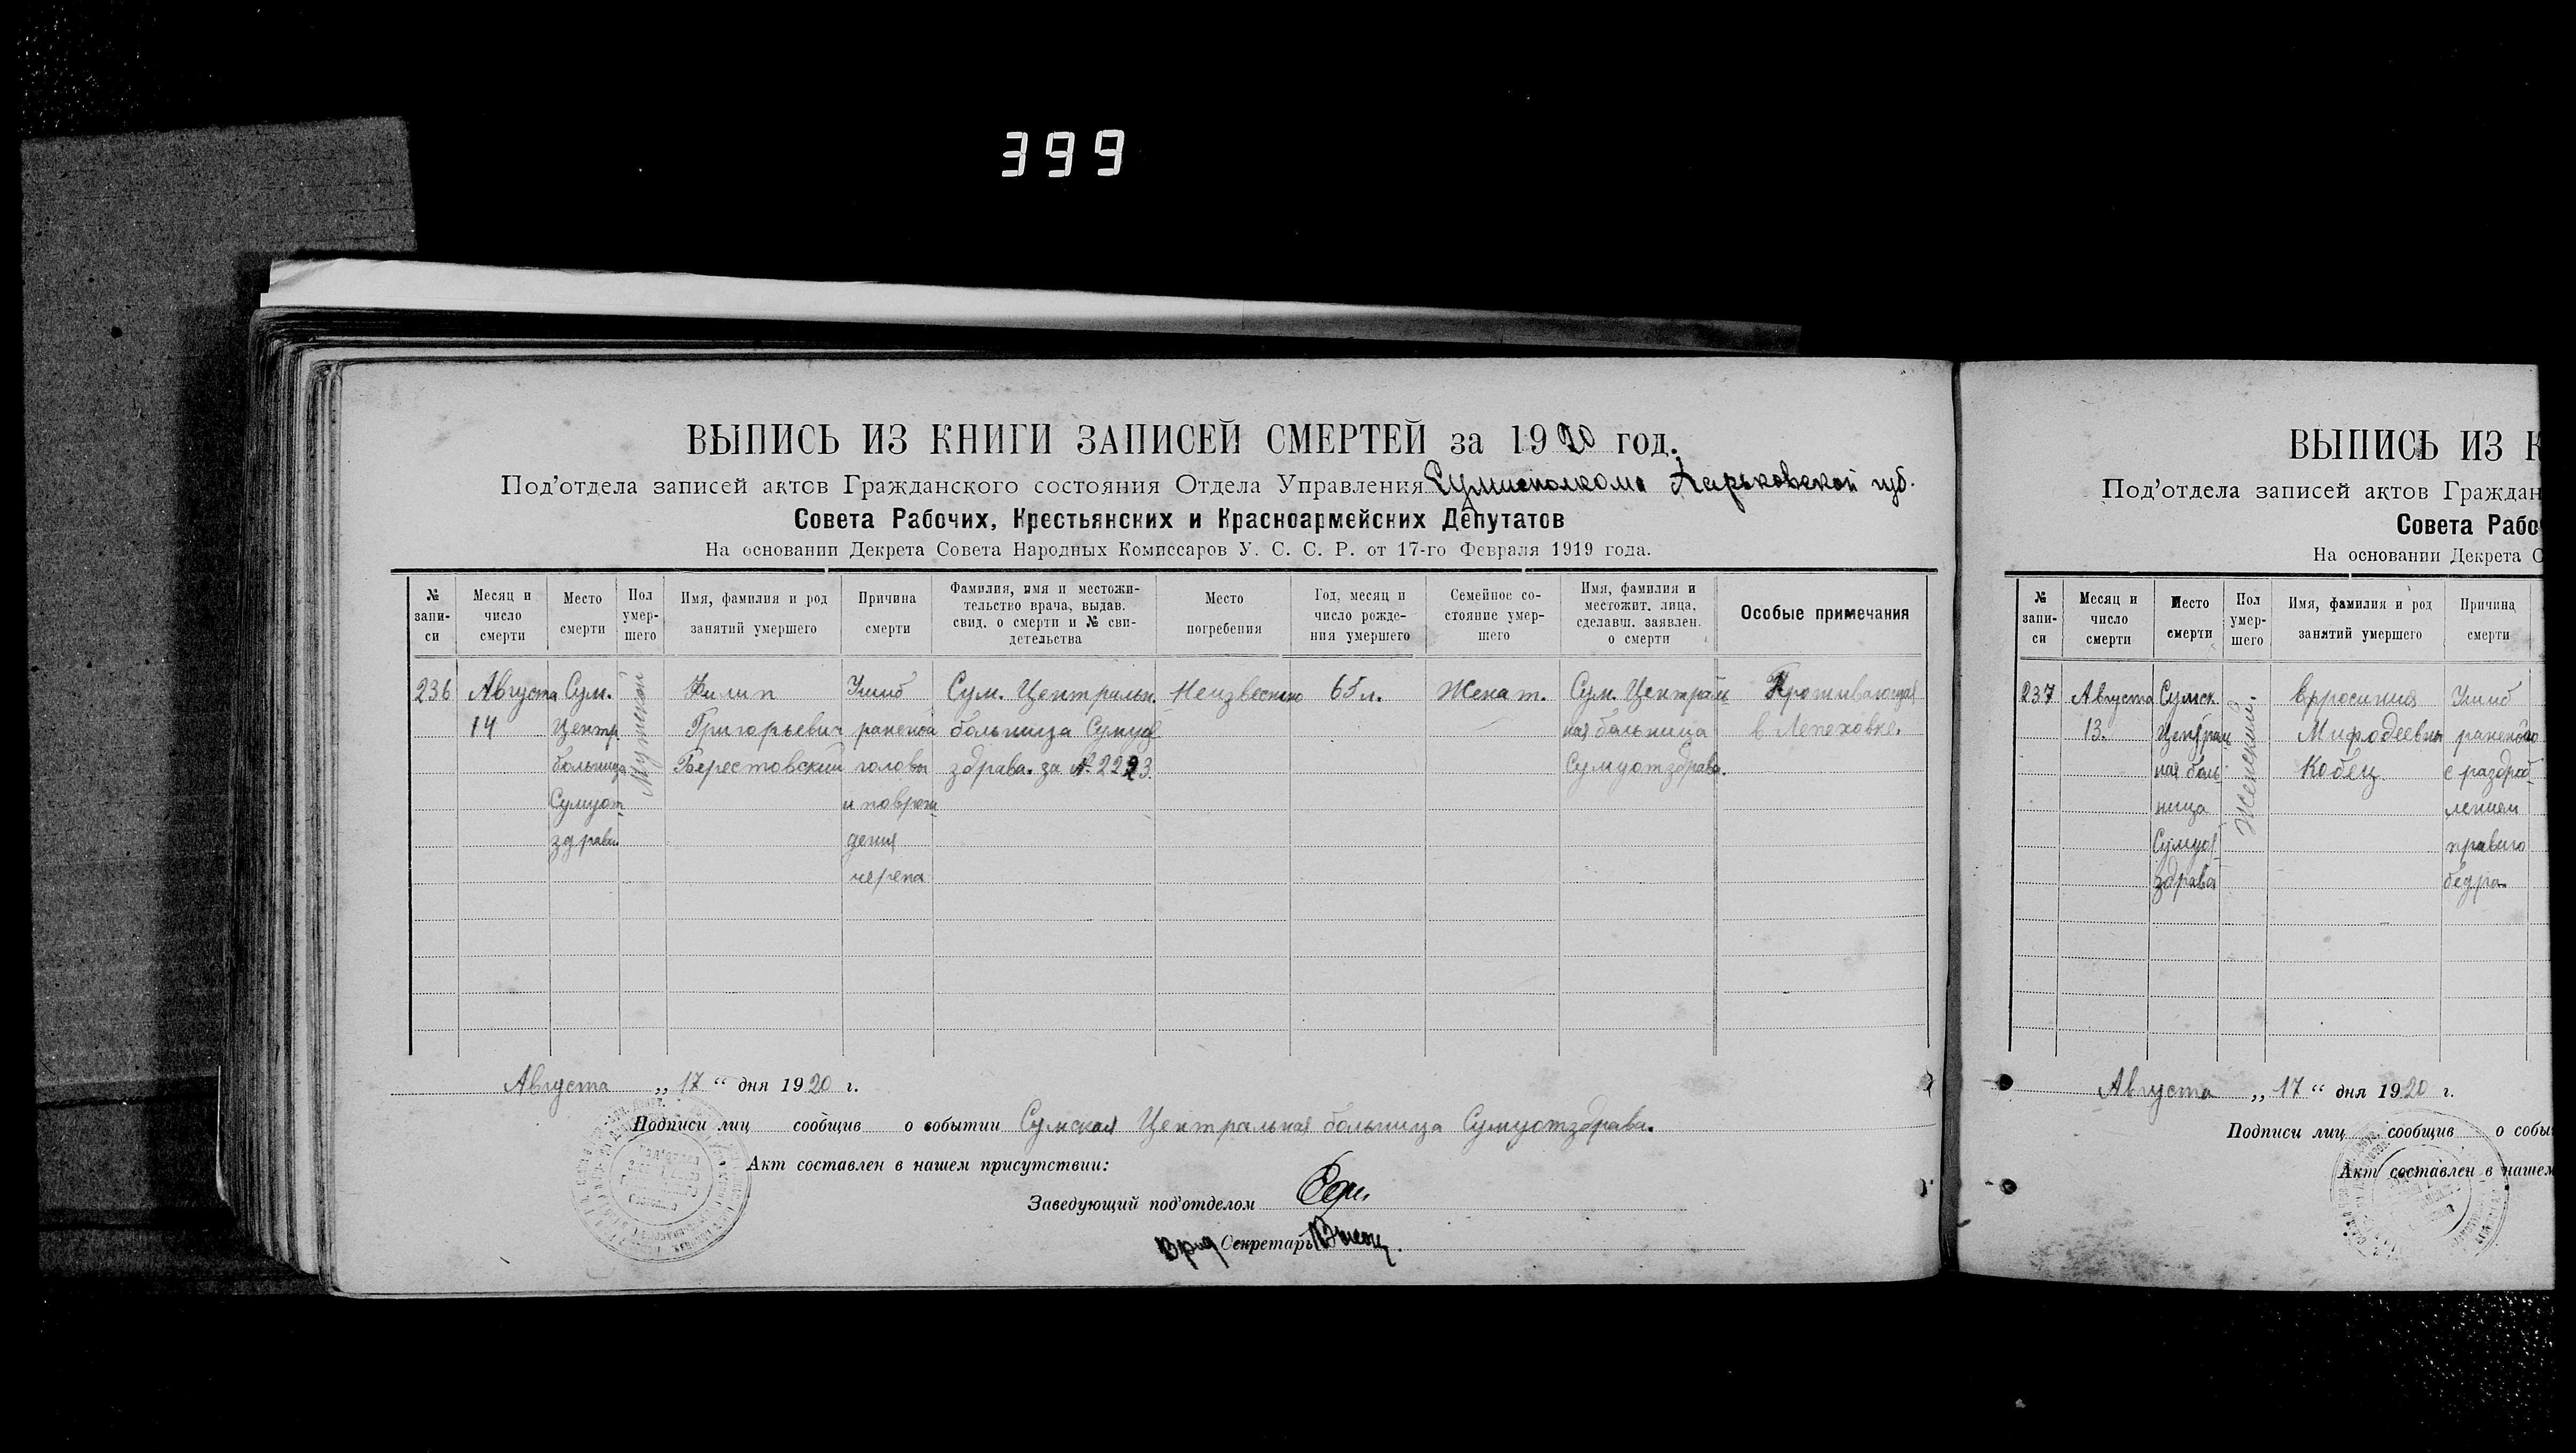 399
ВЫПИСЬ ИЗ КНИГИ ЗАПИСЕЙ СМЕРТЕЙ за 1920 год.
Под'отдела записей актов Гражданского состояния Отдела Управления Сумисполкома Харьковской губ.
Совета Рабочих, Крестьянских и Красноармейских Депутатов
На основании Декрета Совета Народных Комиссаров У. С. С. Р. от 17-го Февраля 1919 года.
№ запи- си
Месяц и число смерти
Место смерти
Пол умер- шего
Имя, фамилия и род занятий умершего
Причина смерти
Фамилия, имя и местожи- тельство врача, выдав. свид. о смерти и № сви- детельства
Место погребения
Год, месяц и число рожде- ния умершего
Семейное со- стояние умер- шего
Имя, фамилия и местожит. лица, сделавш. заявлен. о смерти
Особые примечания
236
Августа
14
Сум.
Центр.
больница
Сумуот-
здрава
Мужской
Филип
Григорьевич
Берестовский
Ушиб
раненой
головы
и повреж-
дения
черепа
Сум. Центральн.
больница Сумуот-
здрава. за № 2223.
Неизвестно
65 л.
Женат.
Сум. Централь-
ная больница
Сумуотздрава.
Проживающая
в Лепеховке.
Августа „17“ дня 1920 г.
Подписи лиц сообщив о событии Сумская Центральная больница Сумуотздрава.
Акт составлен в нашем присутствии:
Заведующий под'отделом
Врид Секретарь
ВЫПИСЬ ИЗ К
Под'отдела записей актов Граждан
Совета Рабоч
На основании Декрета С
№ запи- си
Месяц и число смерти
Место смерти
Пол умер- шего
Имя, фамилия и род занятий умершего
Причина смерти
237
Августа
13.
Сумск.
Централь-
ная боль-
ница
Сумуот-
здрава
Женский.
Ефросиния
Мифодеевна
Кобец
Ушиб
раненого
с раздроб-
лением
правого
бедра.
Августа „17“ дня 1920 г.
Подписи лиц сообщив о собы
Акт составлен в нашем